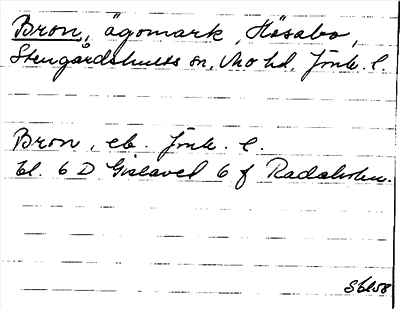 Bron, ägomark, Håsabo,
Stengårdshults sn, Mo hd, Jönk. l.
Bron, eb. Jönk. l.
bl. 6 D Gislaved 6 f Radaholm.